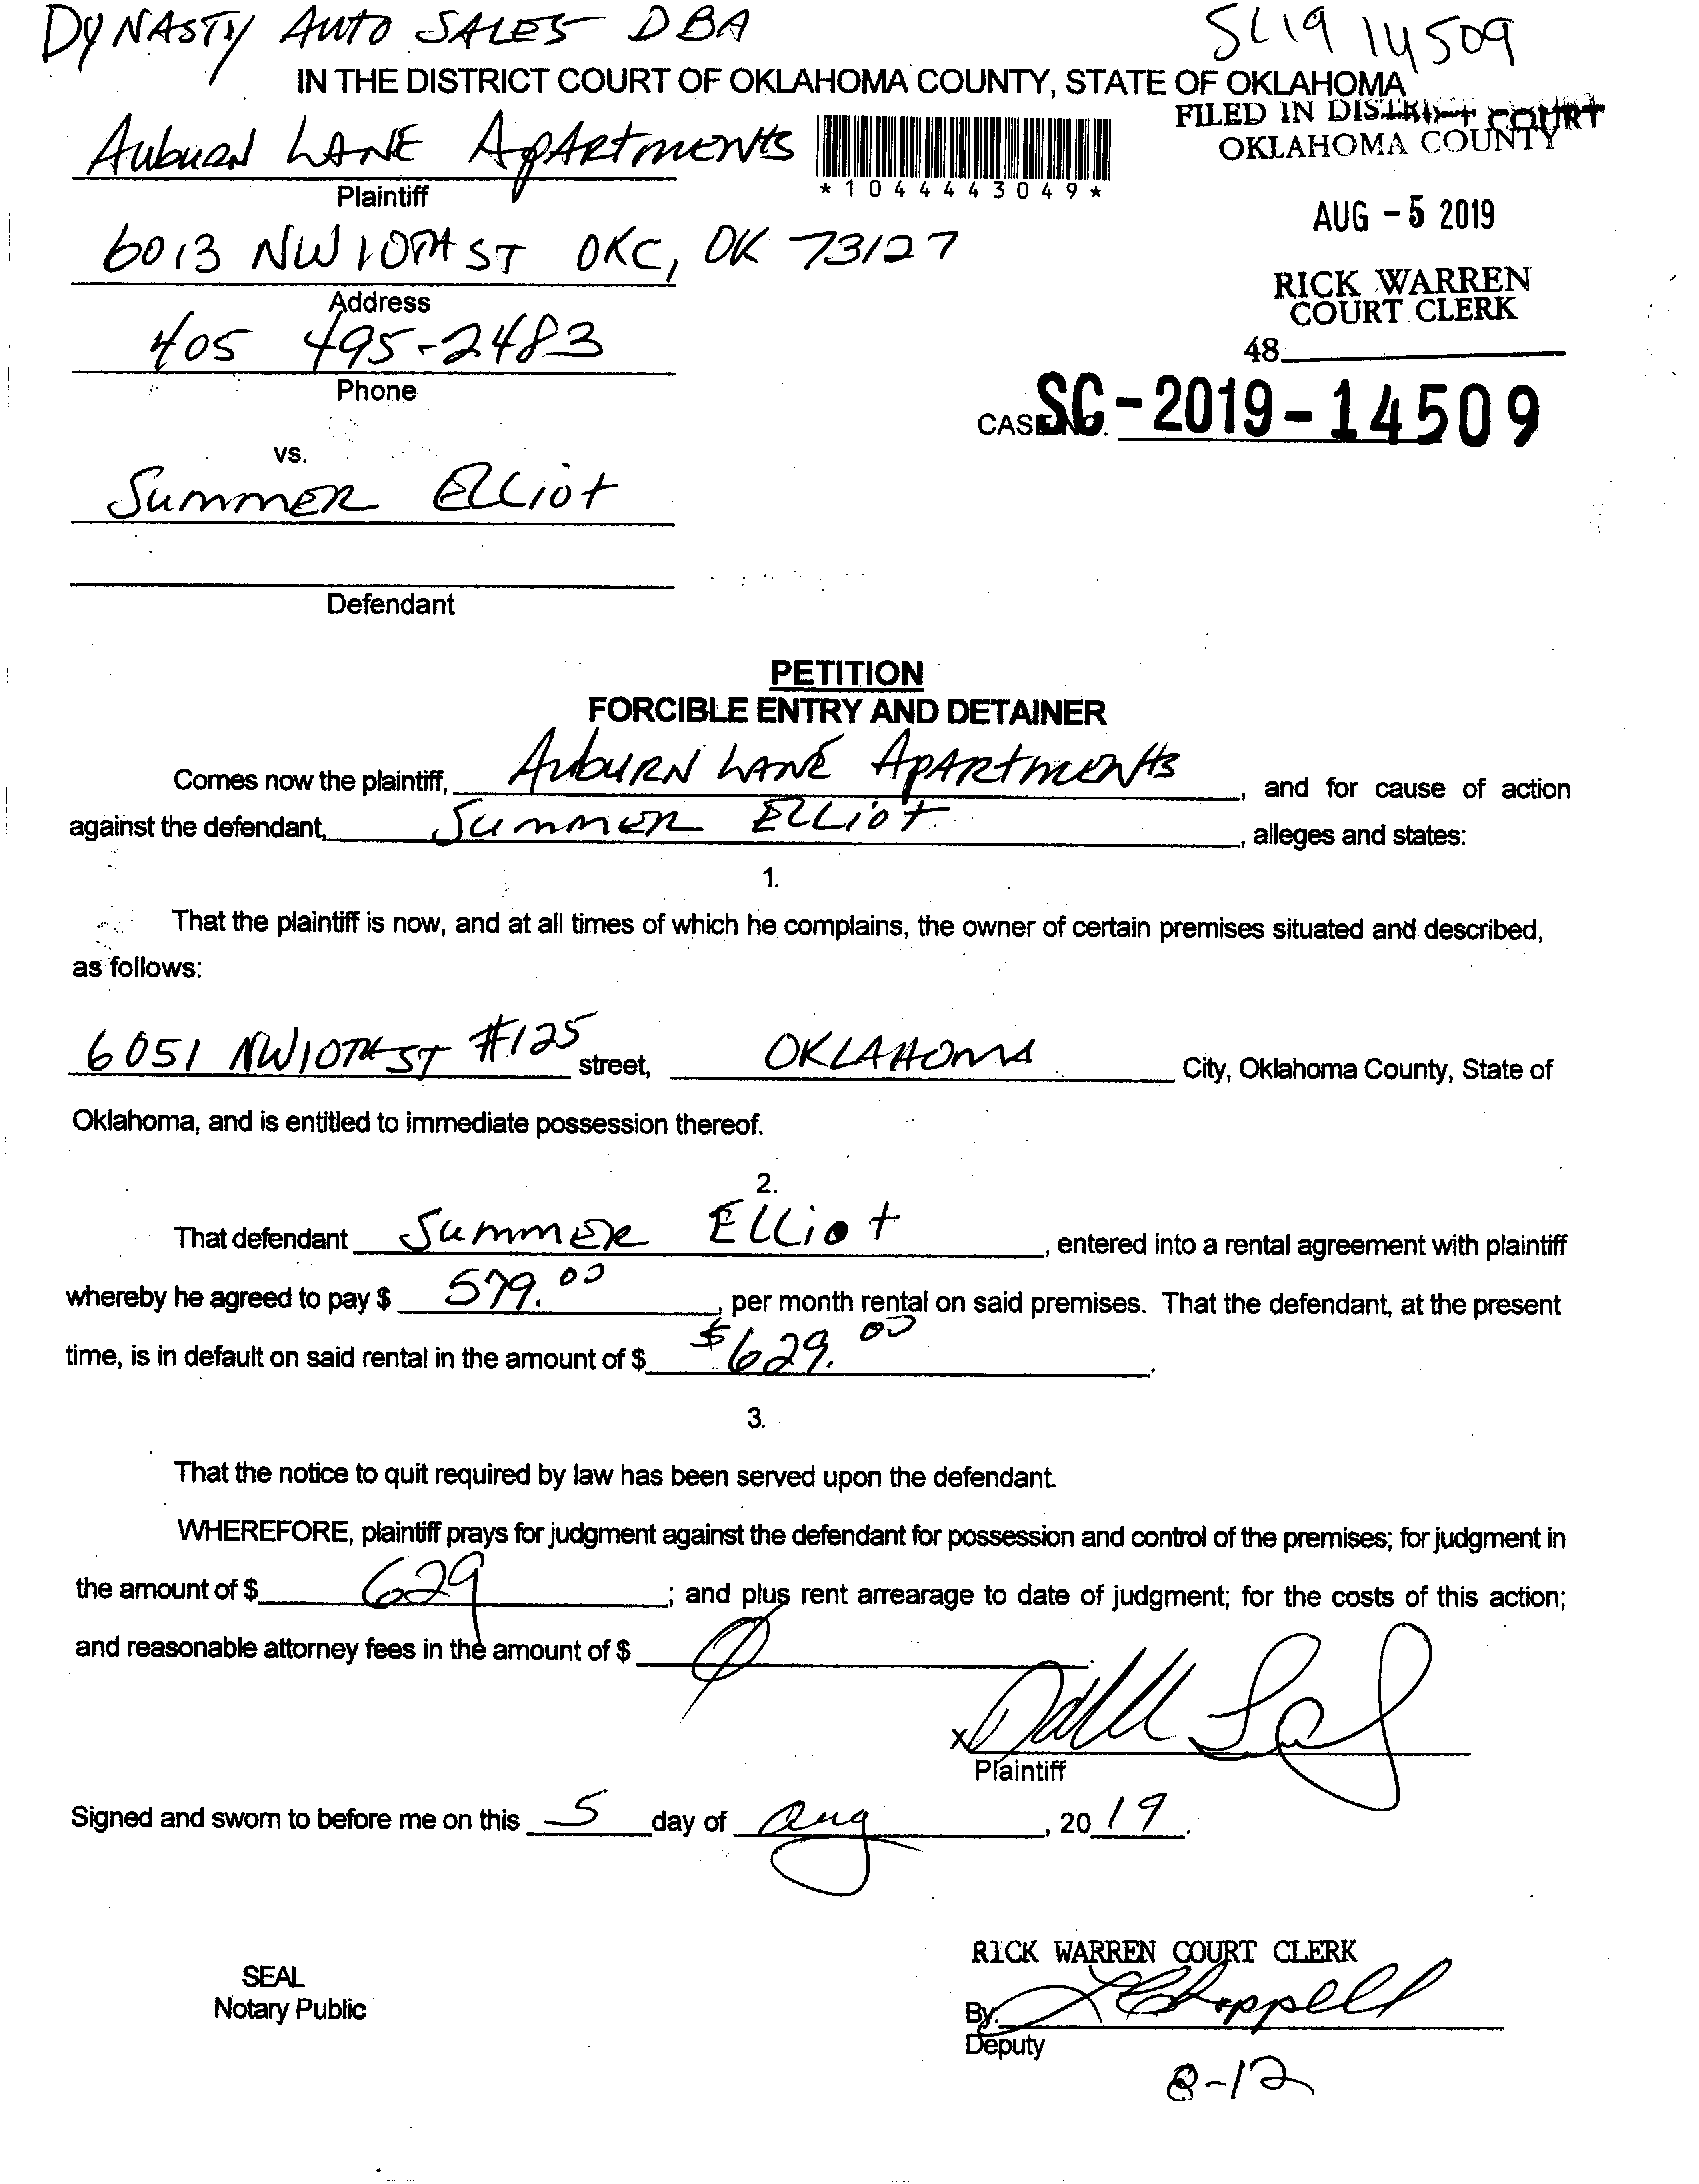 DYNASTY AUTO SALES DBA
SC19 14509
IN THE DISTRICT COURT OF OKLAHOMA COUNTY, STATE OF OKLAHOMA
FILED IN DISTRICT COURT
OKLAHOMA COUNTY
Auburn LANE ApARtmENts
*1044443049*
Plaintiff
AUG - 5 2019
6013 NW 10TH ST OKC, OK 73127
RICK WARREN
COURT CLERK
Address
405 495-2483
48
Phone
CASE NO. SC-2019-14509
vs.
Summer Elliot
Defendant
PETITION
FORCIBLE ENTRY AND DETAINER
Comes now the plaintiff, AuburN LANE ApARtmENts, and for cause of action
against the defendant, Summer Elliot, alleges and states:
1.
That the plaintiff is now, and at all times of which he complains, the owner of certain premises situated and described,
as follows:
6051 NW 10TH ST #125 street, OKLAHOMA City, Oklahoma County, State of
Oklahoma, and is entitled to immediate possession thereof.
2.
That defendant Summer Elliot, entered into a rental agreement with plaintiff
whereby he agreed to pay $ 579.00, per month rental on said premises. That the defendant, at the present
time, is in default on said rental in the amount of $ $629.00.
3.
That the notice to quit required by law has been served upon the defendant.
WHEREFORE, plaintiff prays for judgment against the defendant for possession and control of the premises; for judgment in
the amount of $ 629; and plus rent arrearage to date of judgment; for the costs of this action;
and reasonable attorney fees in the amount of $ 0
x
Plaintiff
Signed and sworn to before me on this 5 day of Aug, 2019.
RICK WARREN COURT CLERK
SEAL
Notary Public
By: Chappell
Deputy
8-12